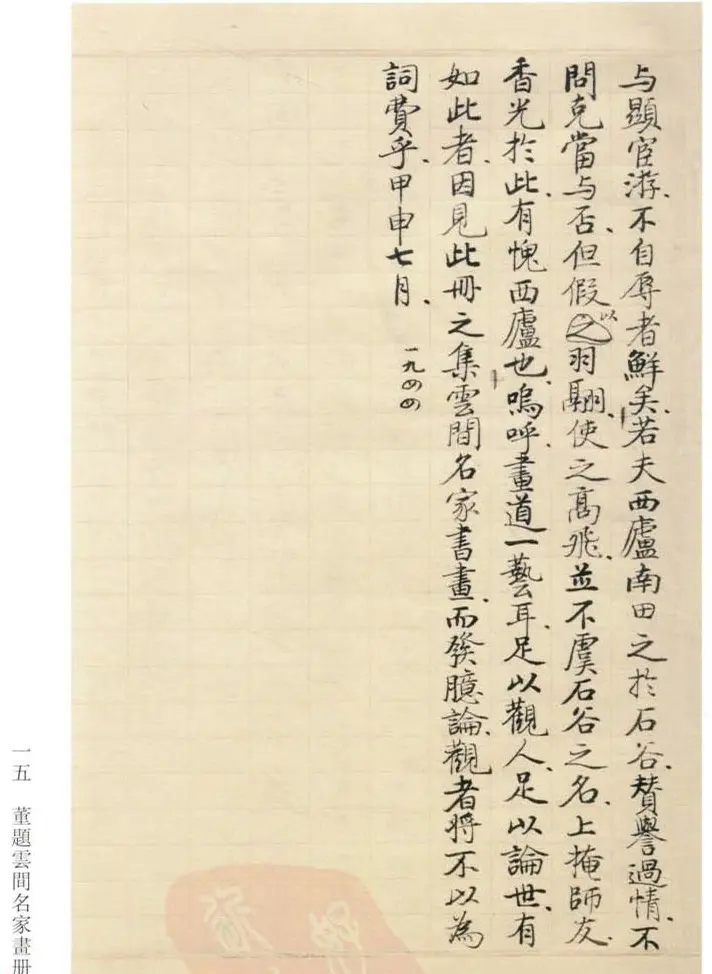 与顯宦游、不自辱者鮮矣、若夫西廬南田之於石谷、賛譽過情、不
問克當与否、但假以羽翮、使之高飛、並不虞石谷之名、上掩師友、
香光於此、有愧西廬也、嗚呼、畫道一藝耳、足以觀人、足以論世、有
如此者、因見此冊之集雲間名家書畫、而發臆論、觀者將不以為
詞費乎、甲申七月、
一九〤〤
一五 董題雲間名家畫册